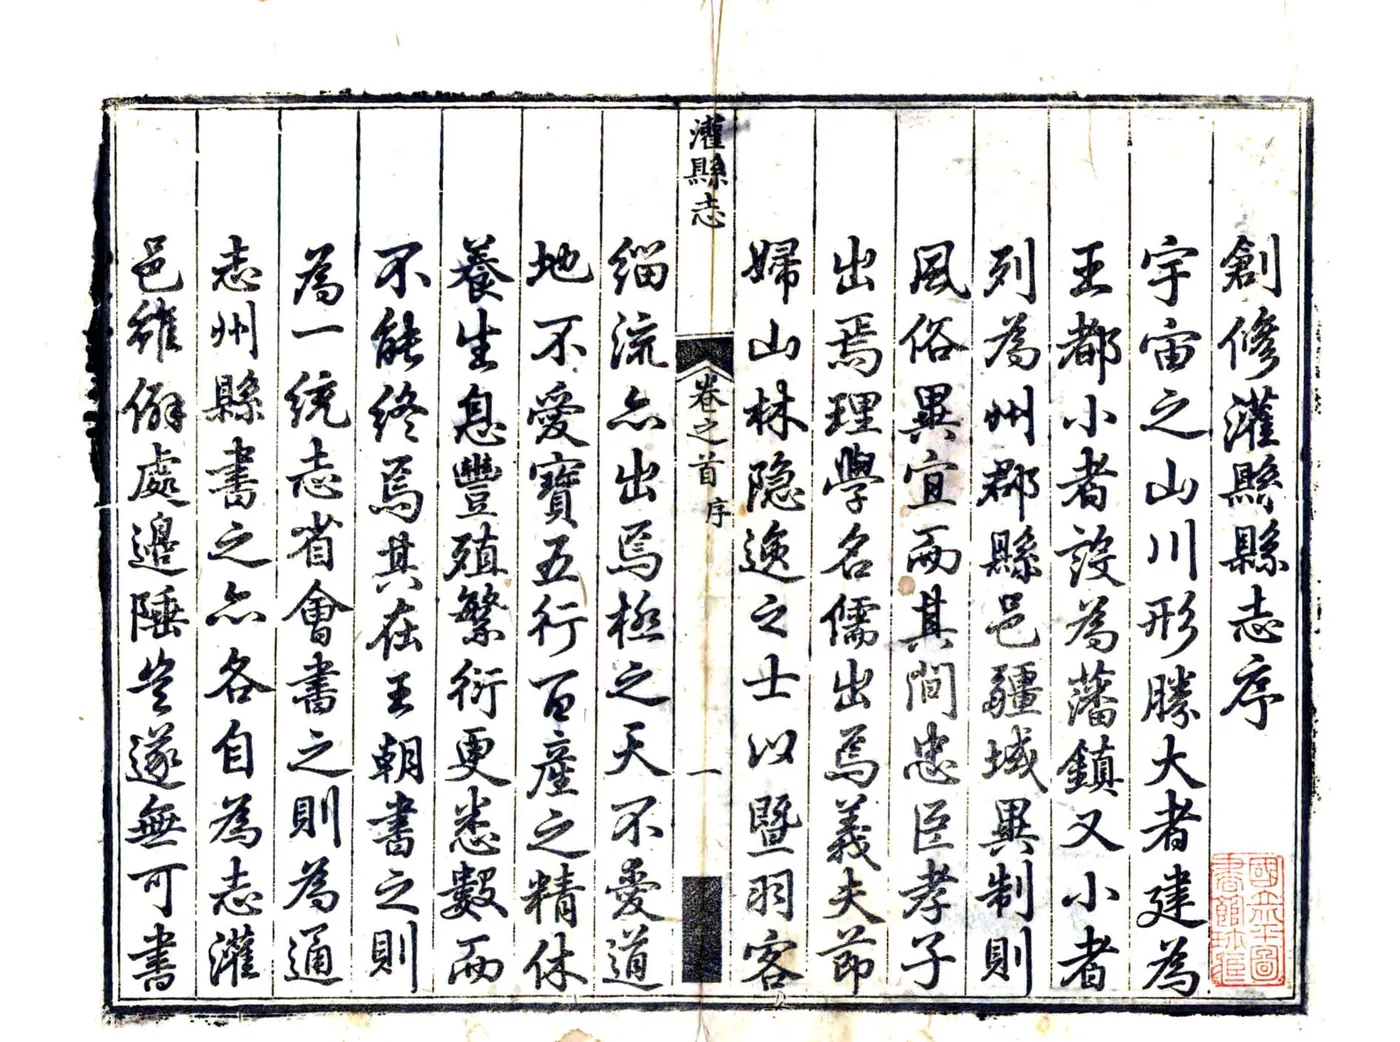 創修灌縣縣志序
宇宙之山川形勝大者建為
王都小者設為藩鎮又小者
列為州郡縣邑疆域異制則
風俗異宜而其間忠臣孝子
出焉理學名儒出焉義夫節
婦山林隐逸之士以暨羽客
灌縣志
卷之首
序
一
緇流亦出焉極之天不愛道
地不愛寶五行百産之精休
養生息豐殖繁衍更悉數而
不能終焉其在王朝書之則
為一統志省會書之則為通
志州縣書之亦各自為志灌
邑雖僻處邊陲豈遂無可書
國立北平圖
書館珍藏